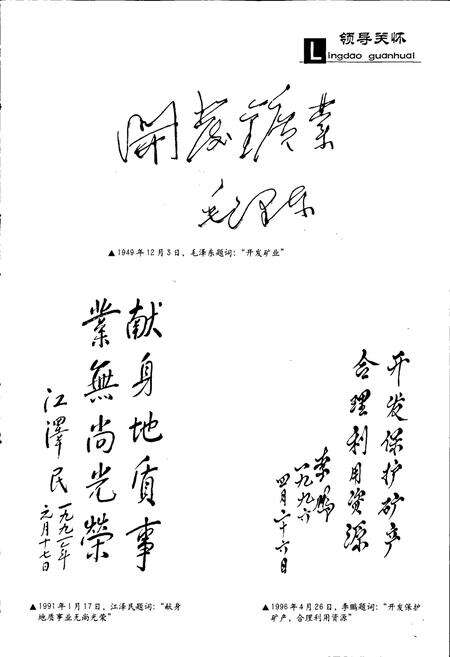 领导关怀
Lingdao guanhuai
開發鑛業
毛泽东
▲1949年12月3日，毛泽东题词：“开发矿业”
献身地质事
業無尚光榮
江澤民
一九九一年
元月十七日
▲1991年1月17日，江泽民题词：“献身
地质事业无尚光荣”
开发保护矿产
合理利用资源
李鹏
一九九六
四月二十六日
▲1996年4月26日，李鹏题词：“开发保护
矿产，合理利用资源”